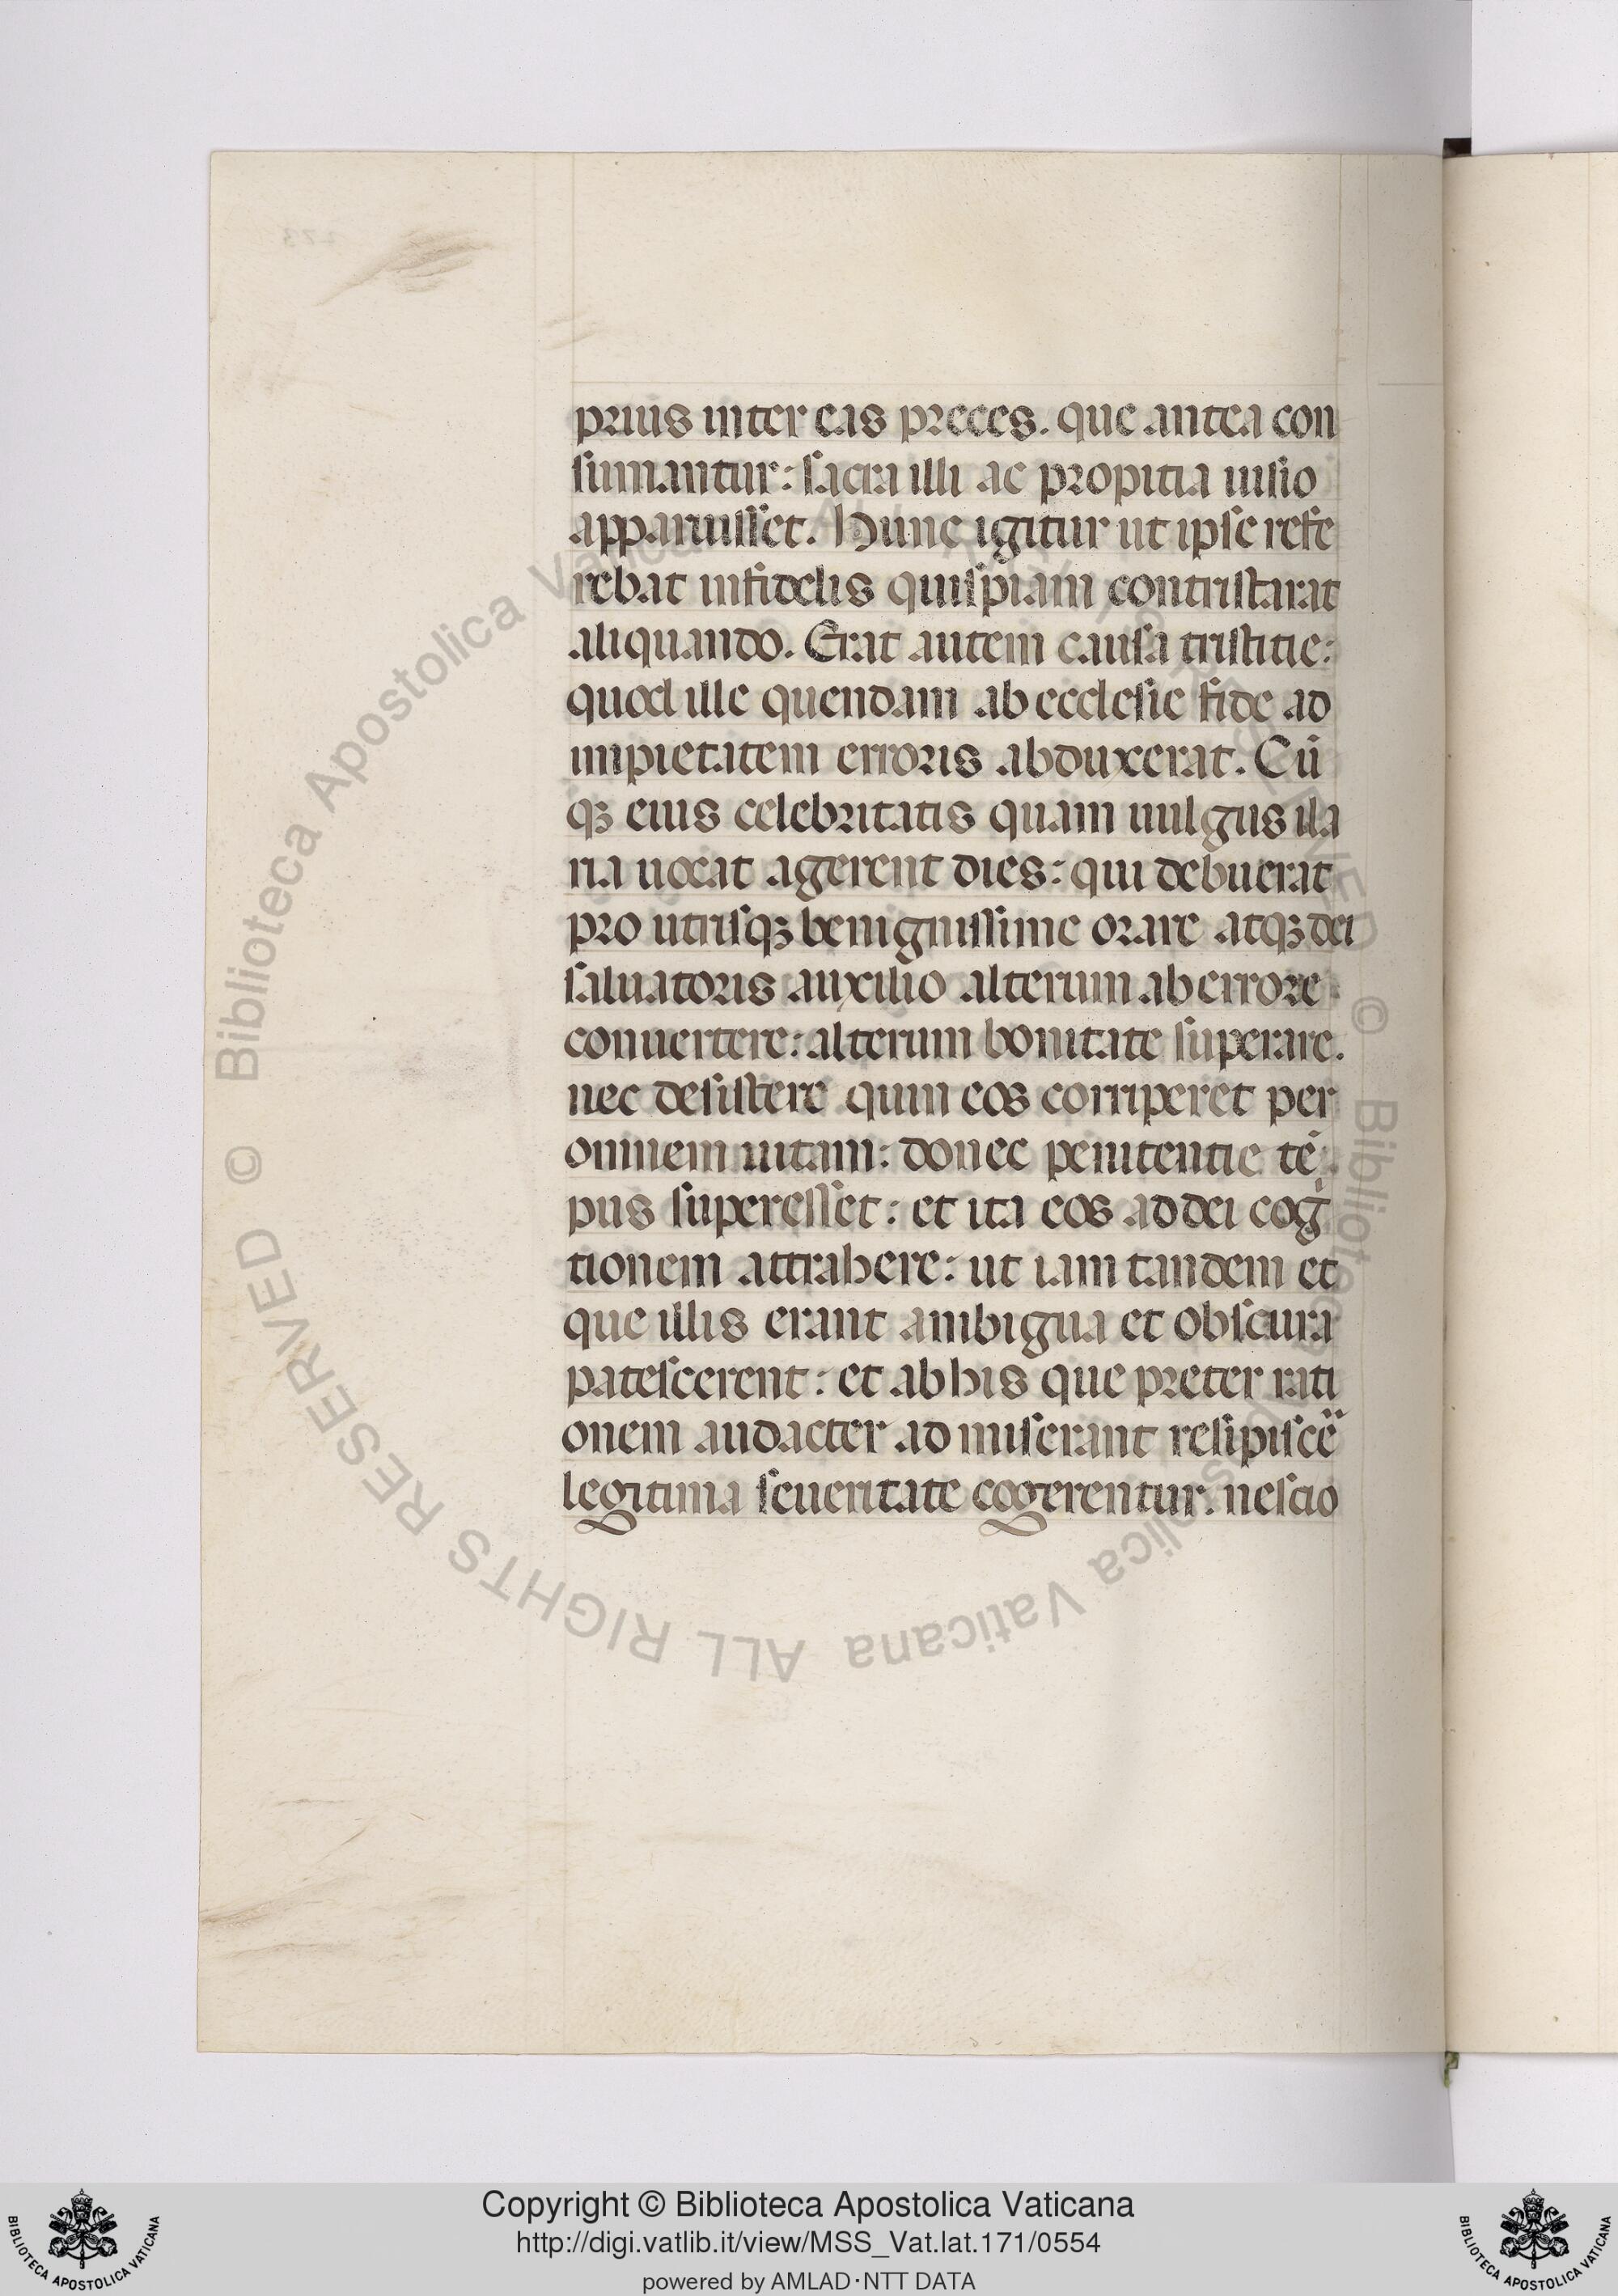 prius inter eas preces. que antea con
sumantur: sacra illi ac propitia uisio
apparuisset. Hunc igitur ut ipse refe
rebat infidelis quispiam contristarat
aliquando. Erat autem causa tristitie:
quod ille quendam ab ecclesie fide ad
impietatem erroris abduxerat. Cū
qꝫ eius celebritatis quam uulgus ila
ria uocat agerent dies: qui debuerat
pro utrisqꝫ benignissime orare atqꝫ dei
saluatoris auxilio alterum ab errore
conuertere: alterum bonitate superare.
nec desistere quin eos corriperet per
omnem uitam: donec penitentie tē
pus superesset: et ita eos ad dei cogͥ
tionem attrahere: ut iam tandem et
que illis erant ambigua et obscura
patescerent: et ab his que preter rati
onem audacter admiserant resipiscē
legitima seueritate cogerentur. nescio
© Biblioteca Apostolica Vaticana ALL RIGHTS RESERVED
Copyright © Biblioteca Apostolica Vaticana
http://digi.vatlib.it/view/MSS_Vat.lat.171/0554
powered by AMLAD·NTT DATA
BIBLIOTECA APOSTOLICA VATICANA
BIBLIOTECA APOSTOLICA VATICANA